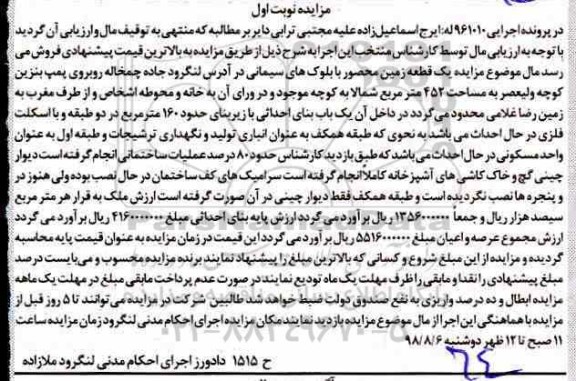 مزایده نوبت اول
در پرونده اجرایی ۹۶۱۰۱۰ له: ایرج اسماعیل زاده علیه مجتبی ترابی دایر بر مطالبه که منتهی به توقیف مال و ارزیابی آن گردید
با توجه به ارزیابی مال توسط کارشناس منتخب این اجرا به شرح ذیل از طریق مزایده به بالاترین قیمت پیشنهادی فروش می
رسد مال موضوع مزایده یک قطعه زمین محصور با بلوک های سیمانی در آدرس لنگرود جاده چمخاله روبروی پمپ بنزین
کوچه ولیعصر به مساحت ۴۵۲ متر مربع شمالا به کوچه موجود و در ورای آن به خانه و محوطه اشخاص و از طرف مغرب به
زمین رضا غلامی محدود می گردد در داخل آن یک باب بنای احداثی با زیربنای حدود ۱۶۰ مترمربع در دو طبقه و با اسکلت
فلزی در حال احداث می باشد به نحوی که طبقه همکف به عنوان انباری تولید و نگهداری ترشیجات و طبقه اول به عنوان
واحد مسکونی در حال احداث می باشد که طبق بازدید کارشناس حدود ۸۰ درصد عملیات ساختمانی انجام گرفته است دیوار
چینی گچ و خاک کاشی های آشپزخانه کاملا انجام گرفته است سرامیک های کف ساختمان در حال نصب بوده ولی هنوز در
و پنجره ها نصب نگردیده است و طبقه همکف فقط دیوار چینی در آن صورت گرفته است ارزش ملک به قرار هر متر مربع
سیصد هزار ریال و جمعاً ۱۳۵۶۰۰۰۰۰۰ ریال برآورد می گردد ارزش پایه بنای احداثی مبلغ ۴۱۶۰۰۰۰۰۰۰ ریال برآورد می گردد
ارزش مجموع عرصه و اعیان مبلغ ۵۵۱۶۰۰۰۰۰۰ ریال برآورد می گردد این قیمت در زمان مزایده به عنوان قیمت پایه محاسبه
گردیده و مزایده از این مبلغ شروع و کسانی که بالاترین مبلغ را پیشنهاد نمایند برنده مزایده محسوب و می بایست در صد
مبلغ پیشنهادی را نقدا و مابقی را ظرف مهلت یک ماه تودیع نمایند: در صورت عدم پرداخت مابقی مبلغ در مهلت یک ماهه
مزایده ابطال و ده درصد واریزی به نفع صندوق دولت ضبط خواهد شد طالبین شرکت در مزایده می توانند تا ۵ روز قبل از
مزایده با هماهنگی این اجرا از مال موضوع مزایده بازدید نمایند مکان مزایده اجرای احکام مدنی لنگرود زمان مزایده ساعت
۱۱ صبح تا ۱۲ ظهر دوشنبه ۹۸/۸/۶
ح ۱۵۱۵ دادورز اجرای احکام مدنی لنگرود ملازاده